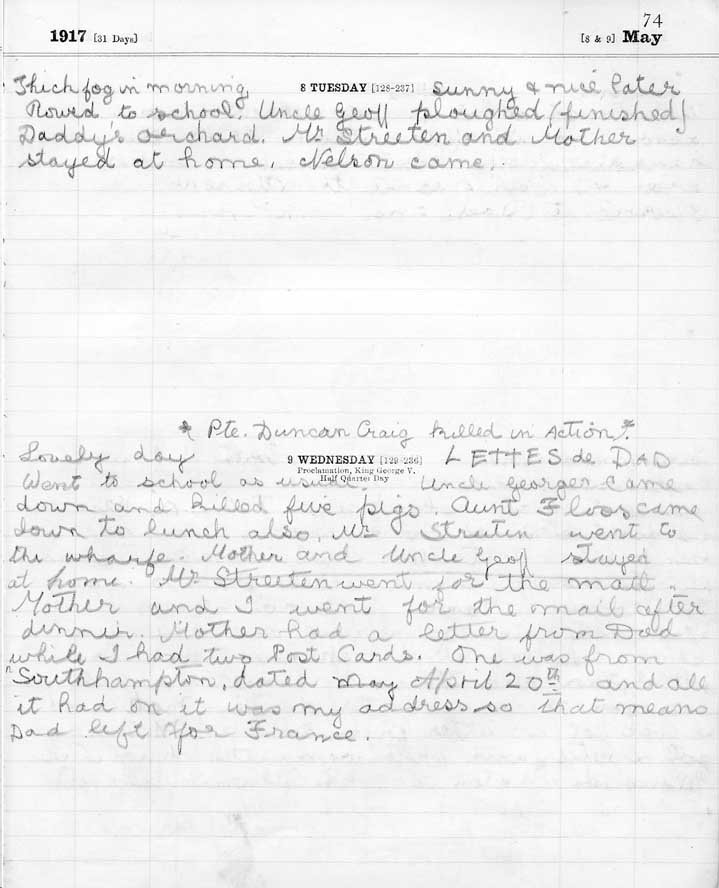 74
1917 [31 Days] [8 & 9] May
Thick fog in morning 8 TUESDAY [128-237] sunny & nice later
Rowed to school. Uncle Geoff ploughed (finished)
Daddy's orchard. Mr Streeten and Mother
stayed at home. Nelson came.
* Pte. Duncan Craig killed in Action *.
Lovely day 9 WEDNESDAY [129-236] LETTES de DAD
Proclamation, King George V.
Went to school as usual. Half Quarter Day Uncle Georger came
down and killed five pigs. Aunt Floos came
down to lunch also. Mr Streeten went to
the wharfe. Mother and Uncle Geoff stayed
at home. Mr Streeten went for the mail.
Mother and I went for the mail after
dinner. Mother had a letter from Dad
while I had two Post Cards. One was from
Southhampton, dated May April 20th and all
it had on it was my address so that means
Dad left for France.